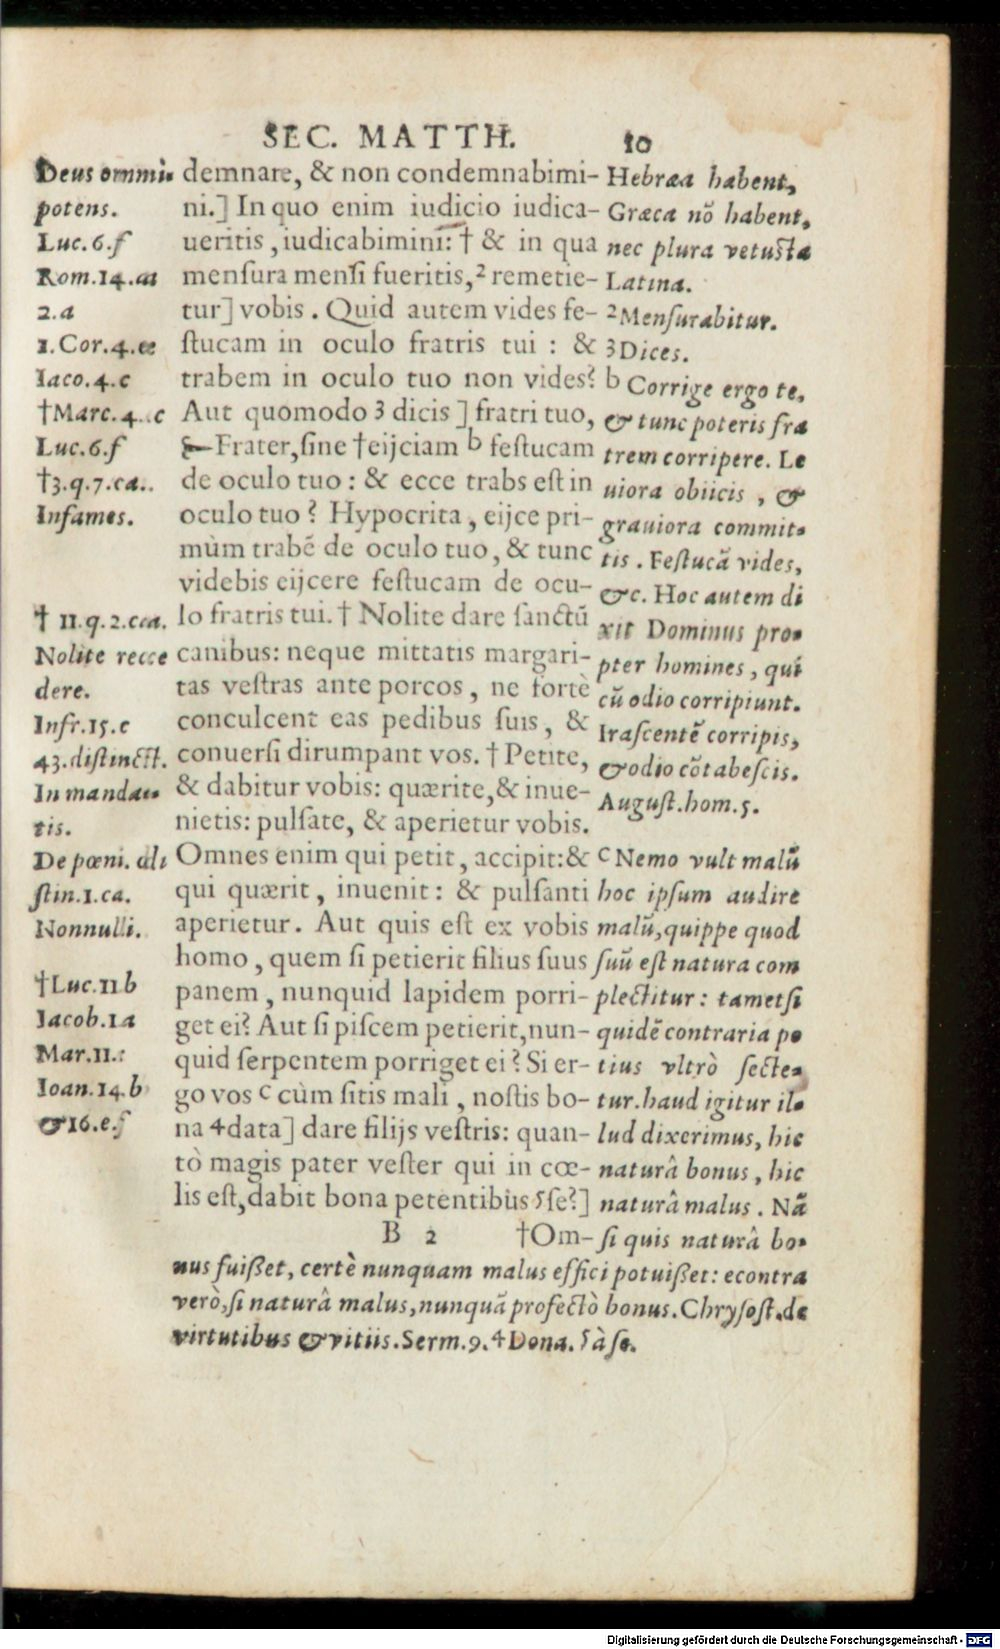 SEC. MATTH. 10
Deus omni-
potens.
Luc.6.f
Rom.14.a
2.a
1.Cor.4.a
Iaco.4.c
†Marc.4.c
Luc.6.f
†3.q.7.ca.
Infames.
† 11.q.2.ca.
Nolite recce
dere.
Infr.15.c
43.distinct.
In manda-
tis.
De pœni. di
stin.1.ca.
Nonnulli.
†Luc.11b
Iacob.1a
Mar.11.
Ioan.14.b
&16.e.f
demnare, & non condemnabimi-
ni.] In quo enim iudicio iudica-
ueritis, iudicabimini: † & in qua
mensura mensi fueritis, ² remetie-
tur] vobis. Quid autem vides fe-
stucam in oculo fratris tui : &
trabem in oculo tuo non vides?
Aut quomodo 3 dicis ] fratri tuo,
Frater, sine †eijciam b festucam
de oculo tuo : & ecce trabs est in
oculo tuo? Hypocrita, eijce pri-
mùm trabē de oculo tuo, & tunc
videbis eijcere festucam de ocu-
lo fratris tui. † Nolite dare sanctū
canibus: neque mittatis margari-
tas vestras ante porcos, ne fortè
conculcent eas pedibus suis, &
conuersi dirumpant vos. † Petite,
& dabitur vobis: quærite, & inue-
nietis: pulsate, & aperietur vobis.
Omnes enim qui petit, accipit:&
qui quærit, inuenit: & pulsanti
aperietur. Aut quis est ex vobis
homo, quem si petierit filius suus
panem, nunquid lapidem porri-
get ei? Aut si piscem petierit, nun-
quid serpentem porriget ei? Si er-
go vos c cùm sitis mali, nostis bo-
na 4data] dare filijs vestris: quan-
tò magis pater vester qui in cœ-
lis est, dabit bona petentibus 5se?]
B 2 †Om-
Hebræa habent,
Græca nō habent,
nec plura vetusta
Latina.
² Mensurabitur.
3 Dices.
b Corrige ergo te,
& tunc poteris fra
trem corripere. Le
uiora obiicis, &
grauiora commit-
tis. Festucā vides,
&c. Hoc autem di
xit Dominus pro-
pter homines, qui
cū odio corripiunt.
Irascentē corripis,
& odio cōtabescis.
August.hom.5.
c Nemo vult malū
hoc ipsum audire
malū, quippe quod
suū est natura com
plectitur: tametsi
quidē contraria po
tius vltrò secte-
tur. haud igitur il-
lud dixerimus, hic
naturâ bonus, hic
naturâ malus. Nā
si quis naturâ bo-
nus fuißet, certè nunquam malus effici potuißet: econtra
verò, si naturâ malus, nunquā profectò bonus. Chrysost. de
virtutibus & vitiis. Serm.9. 4 Dona. 5 à se.
Digitalisierung gefördert durch die Deutsche Forschungsgemeinschaft - DFG